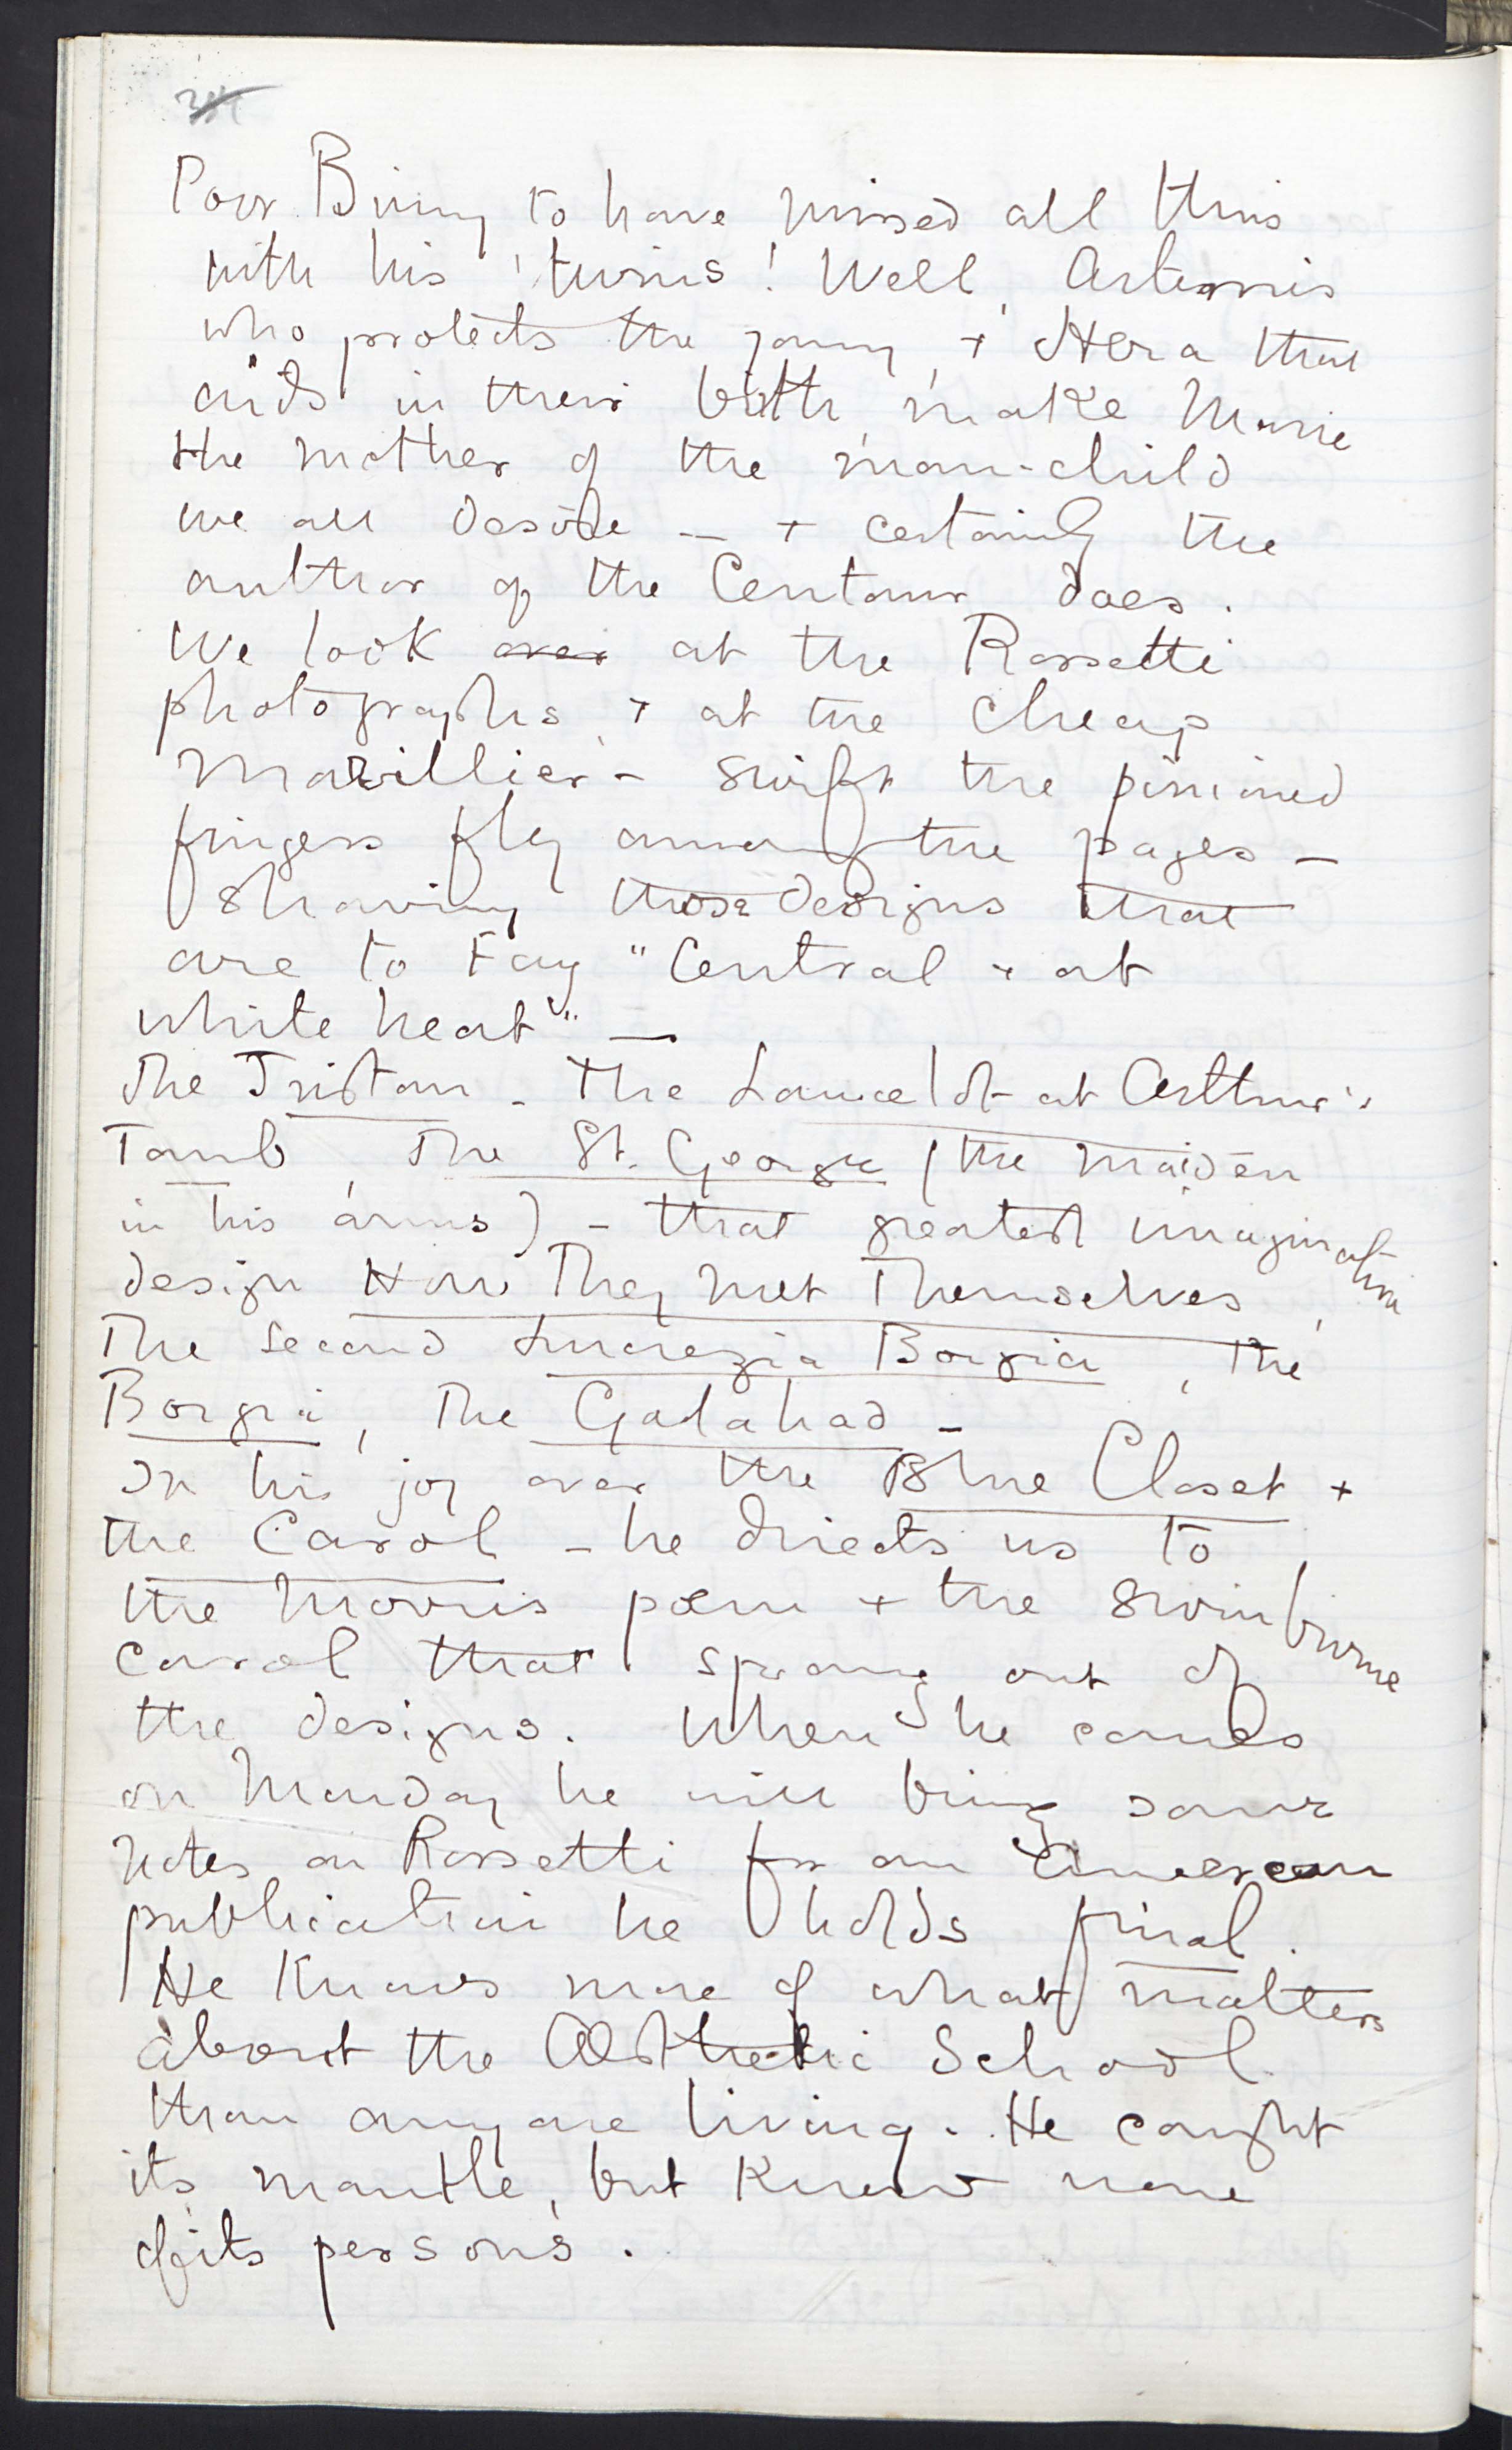 Poor Binny to have missed all this
with his 'twins'! Well, Artemis
who protects the young, + Hera that
aids in their birth, make Marie
the mother of the man-child
we all desire — + certainly the
author of the Centaur does.
We look over at the Rossetti
photographs, + at the cheap
Marillier – swift the pinioned
fingers fly among the pages —
showing those designs that
are to Fay "Central + at
white heat" —
The Tristan – The Launcelot at Arthur's
Tomb, The St. George (the maiden
in his arms) – that greatest imaginative
design How They Met Themselves,
The second Lucrezia Borgia, The
Borgia, The Galahad –
In his joy over the Blue Closet +
the Carol – he directs us to
the Morris poem + the Swinburne
carol that sprang out of
the designs. When he comes
on Monday he will bring some
notes on Rossetti for an American
publication he holds final.
He knows more of what matters
about the Æsthetic School
than anyone living. He caught
its mantle, but knew none
of its persons.